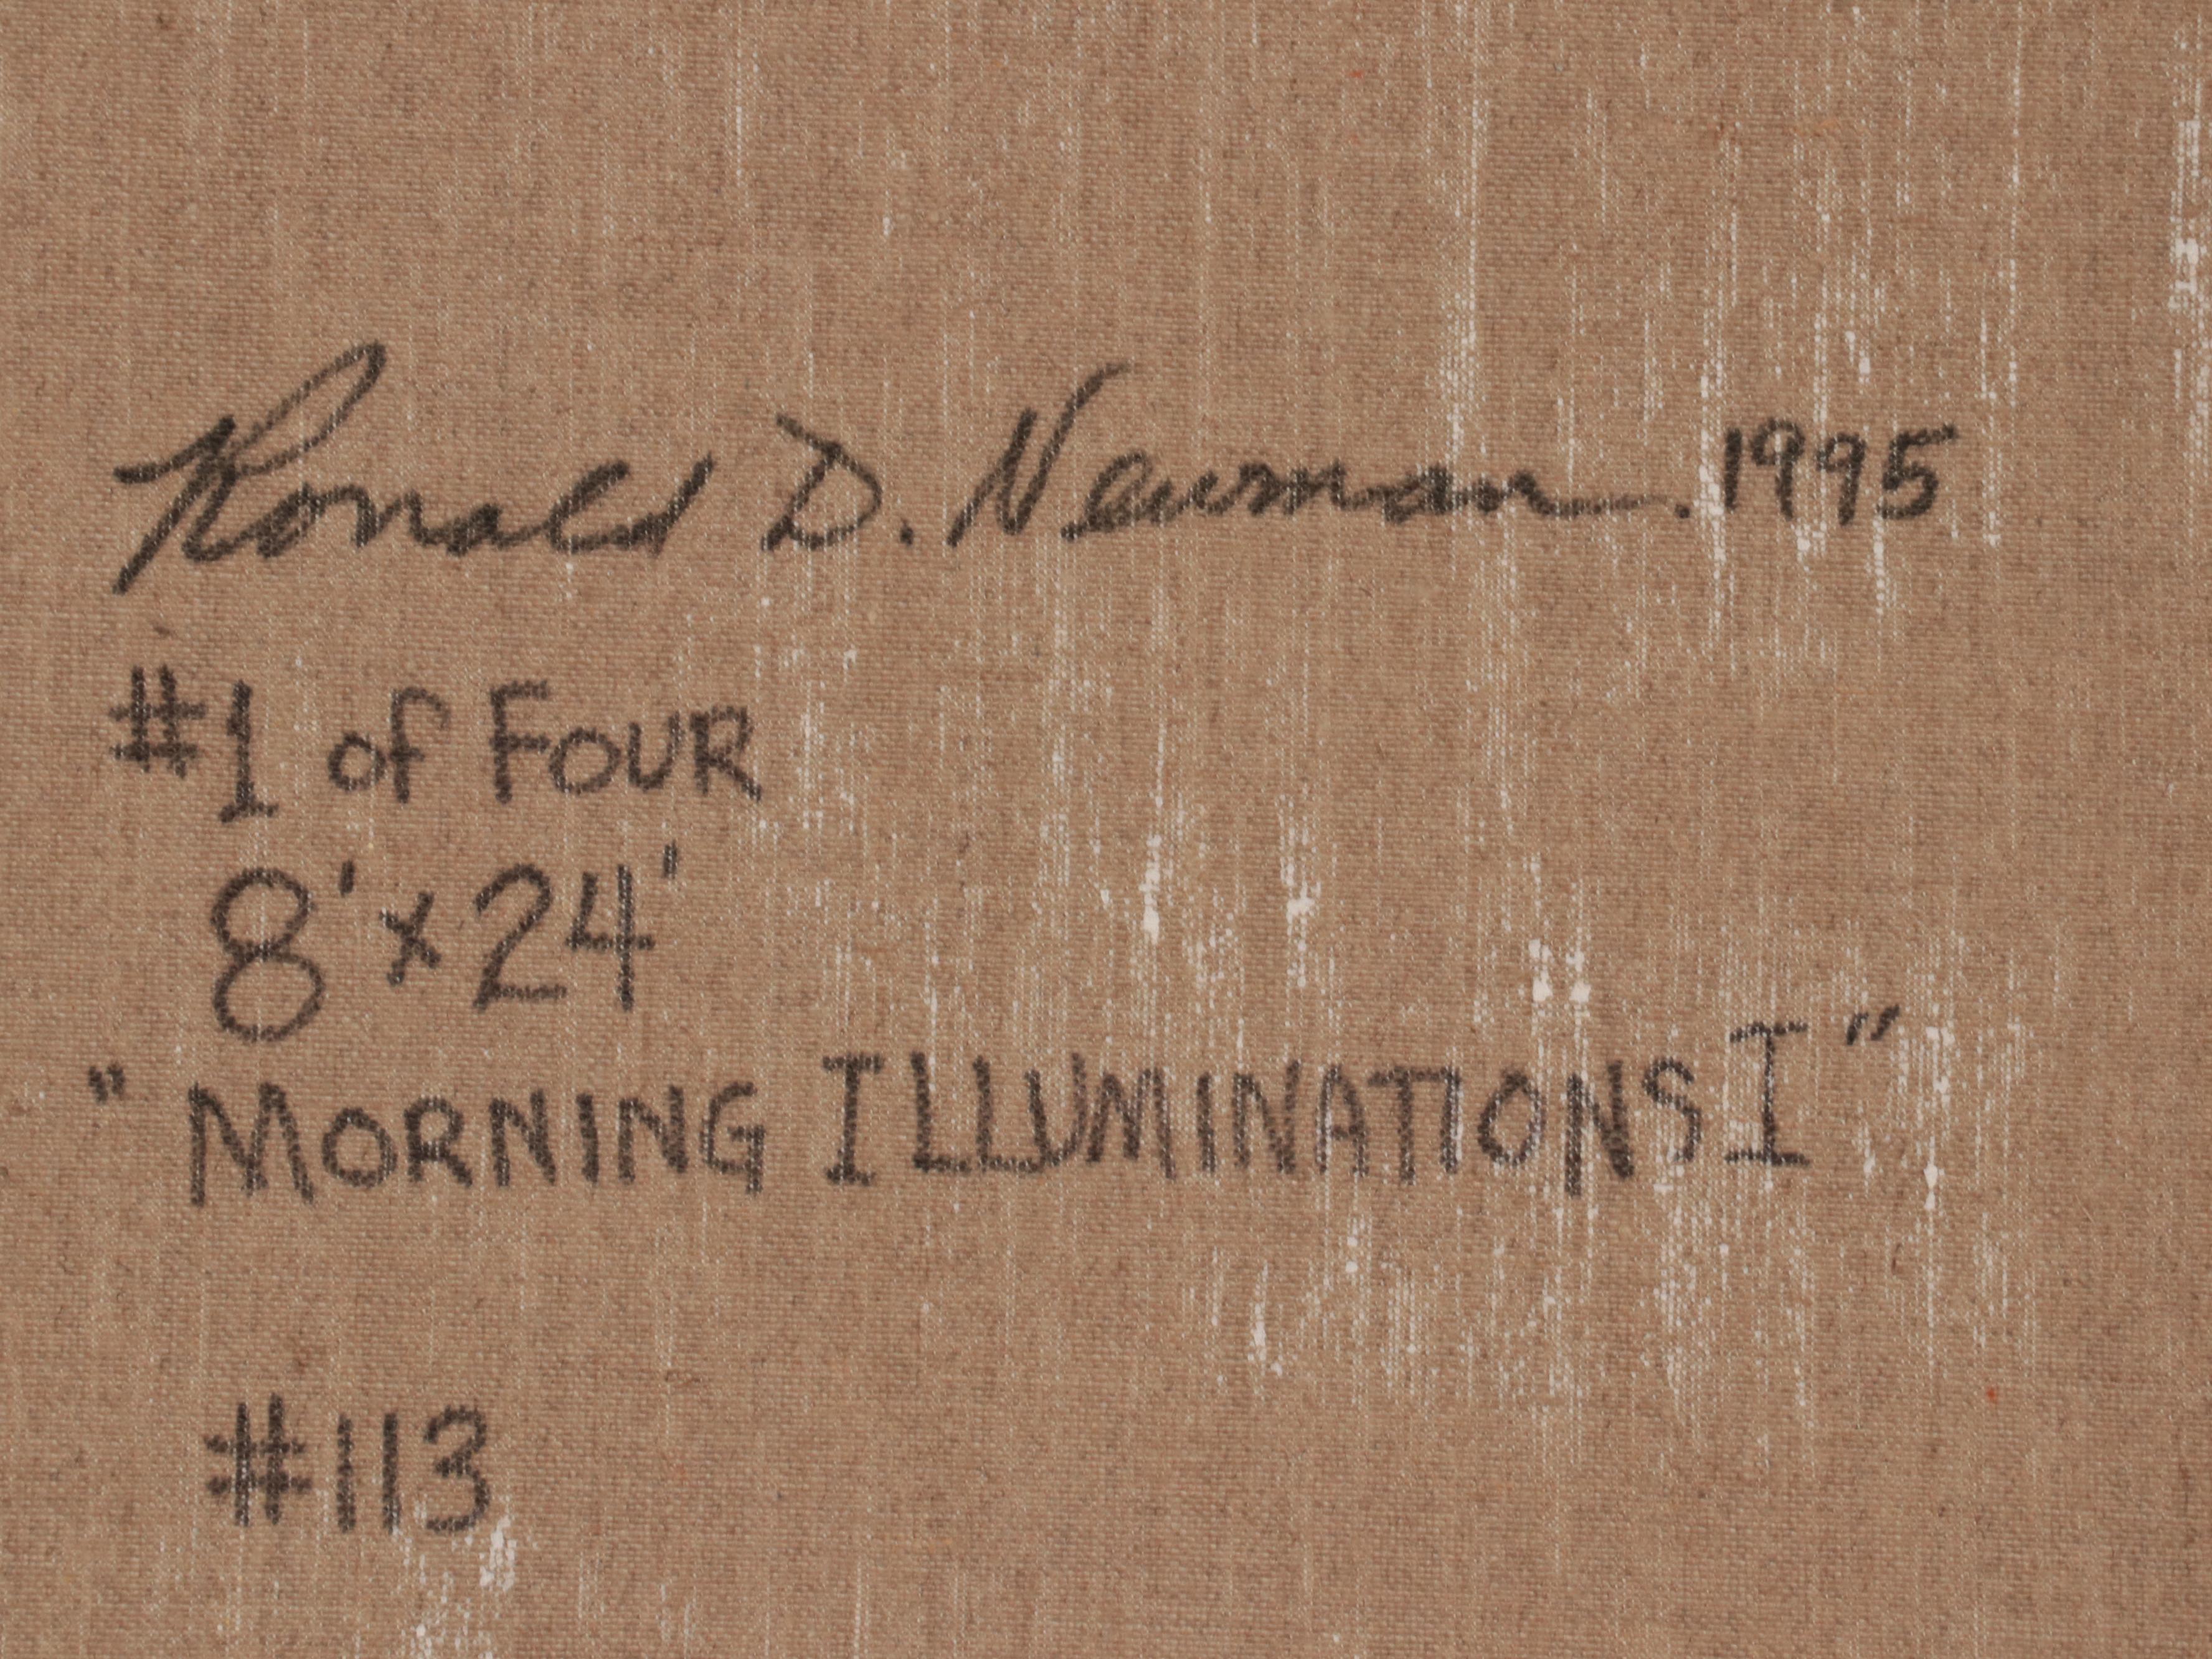 Ronald D. Newman. 1995
#1 of FOUR
8' x 24'
"MORNING ILLUMINATIONS I"
#113